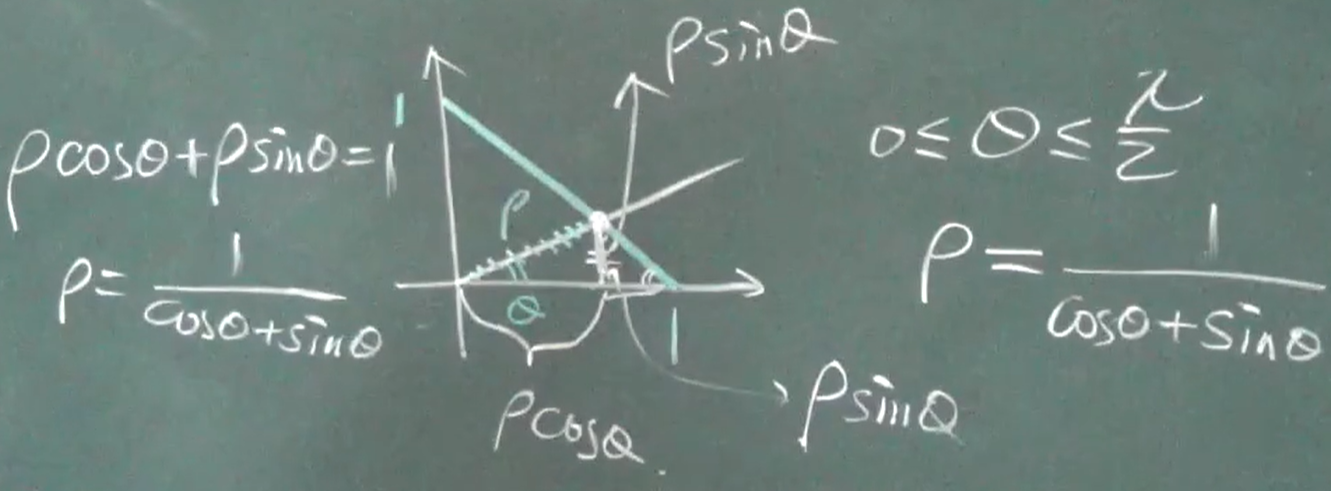 ρcosθ+ρsinθ=1
ρ=1/(cosθ+sinθ)
1
ρsinθ
ρ
θ
1
ρcosθ
ρsinθ
0≤θ≤π/2
ρ=1/(cosθ+sinθ)